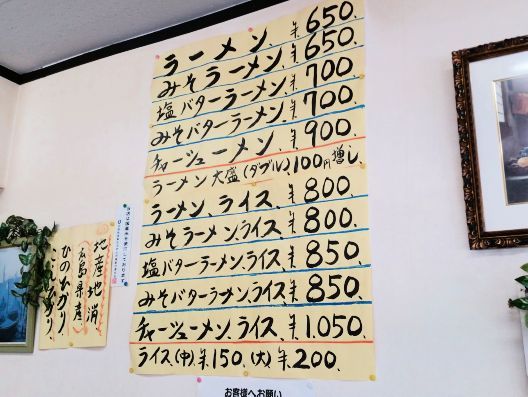 ラーメン、¥650.
みそラーメン、¥650.
塩バターラーメン、¥700.
みそバターラーメン、¥700.
チャーシューメン、¥900.
ラーメン大盛(ダブル)、100円増し
ラーメン、ライス、¥800.
みそラーメン、ライス、¥800.
塩バターラーメン、ライス、¥850.
みそバターラーメン、ライス、¥850.
チャーシューメン、ライス、¥1.050.
ライス、(中)、¥150、(大)、¥200.
地産地消
(広島県産)
ひのひかり、
こしひかり、
お客様へお願い